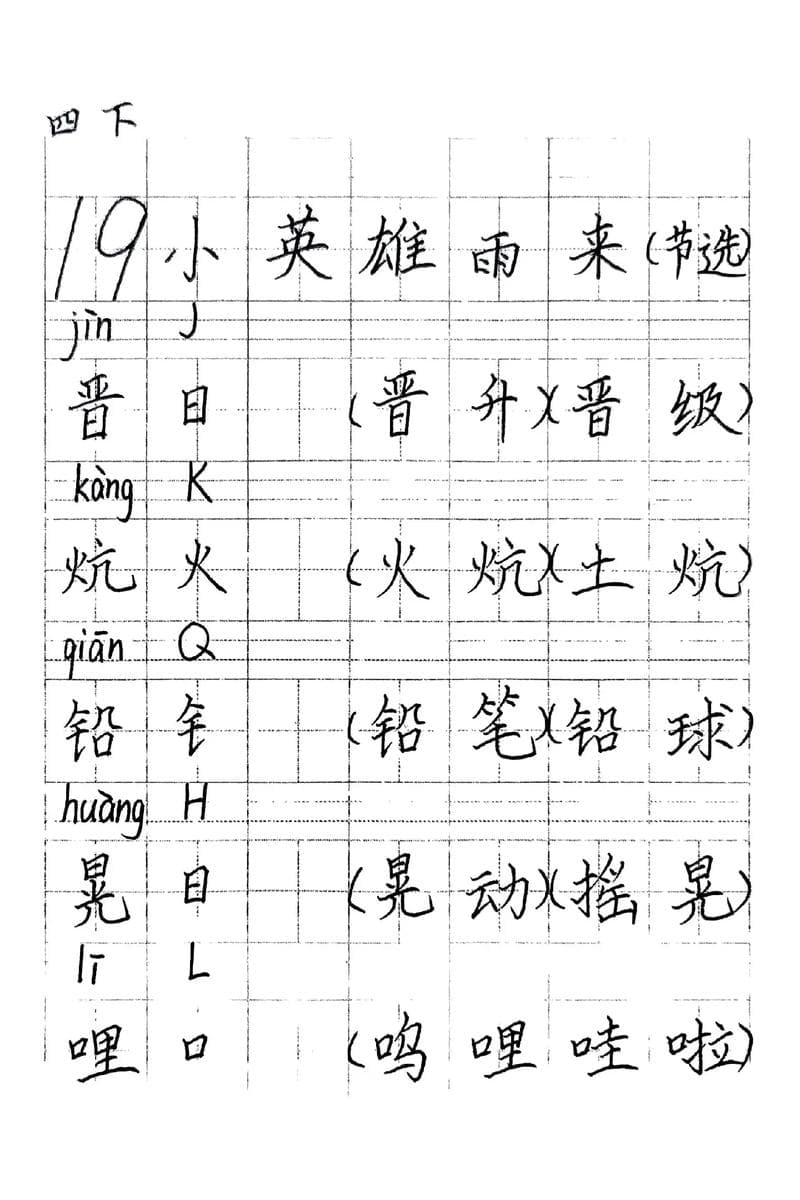 四下
19 小英雄雨来(节选)
jìn J
晋 日 (晋升)(晋级)
kàng K
炕 火 (火炕)(土炕)
qiān Q
铅 钅 (铅笔)(铅球)
huàng H
晃 日 (晃动)(摇晃)
lī L
哩 口 (呜哩哇啦)